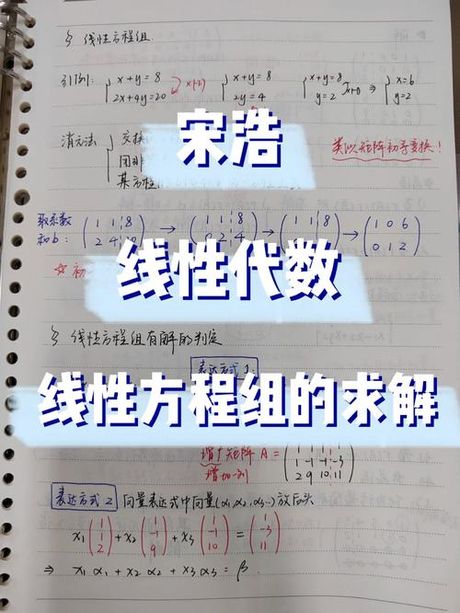 § 线性方程组
引例: { x+y=8 2x+4y=20 ×(-2) { x+y=8 2y=4 { x+y=8 y=2 ⇒ { x=6 y=2
宋浩
消元法 { 交换
某方程
类似矩阵初等变换!
取系数和b: (1 1 8 2 4) → (1 1 8 0 2 4) → (1 1 8) → (1 0 6 0 1 2)
☆初
线性代数
§ 线性方程组有解的判定
表达方式1:
线性方程组的求解
增广矩阵 A = (1 -1 -1 -3 2 9 10 11)
增加一列
表达方式2 向量表达式中向量(α1,α2,α3…)放后头
x1 (1 1 2) + x2 (1 -1 9) + x3 (1 -1 10) = (1 -3 11)
⇒ x1 α1 + x2 α2 + x3 α3 = β